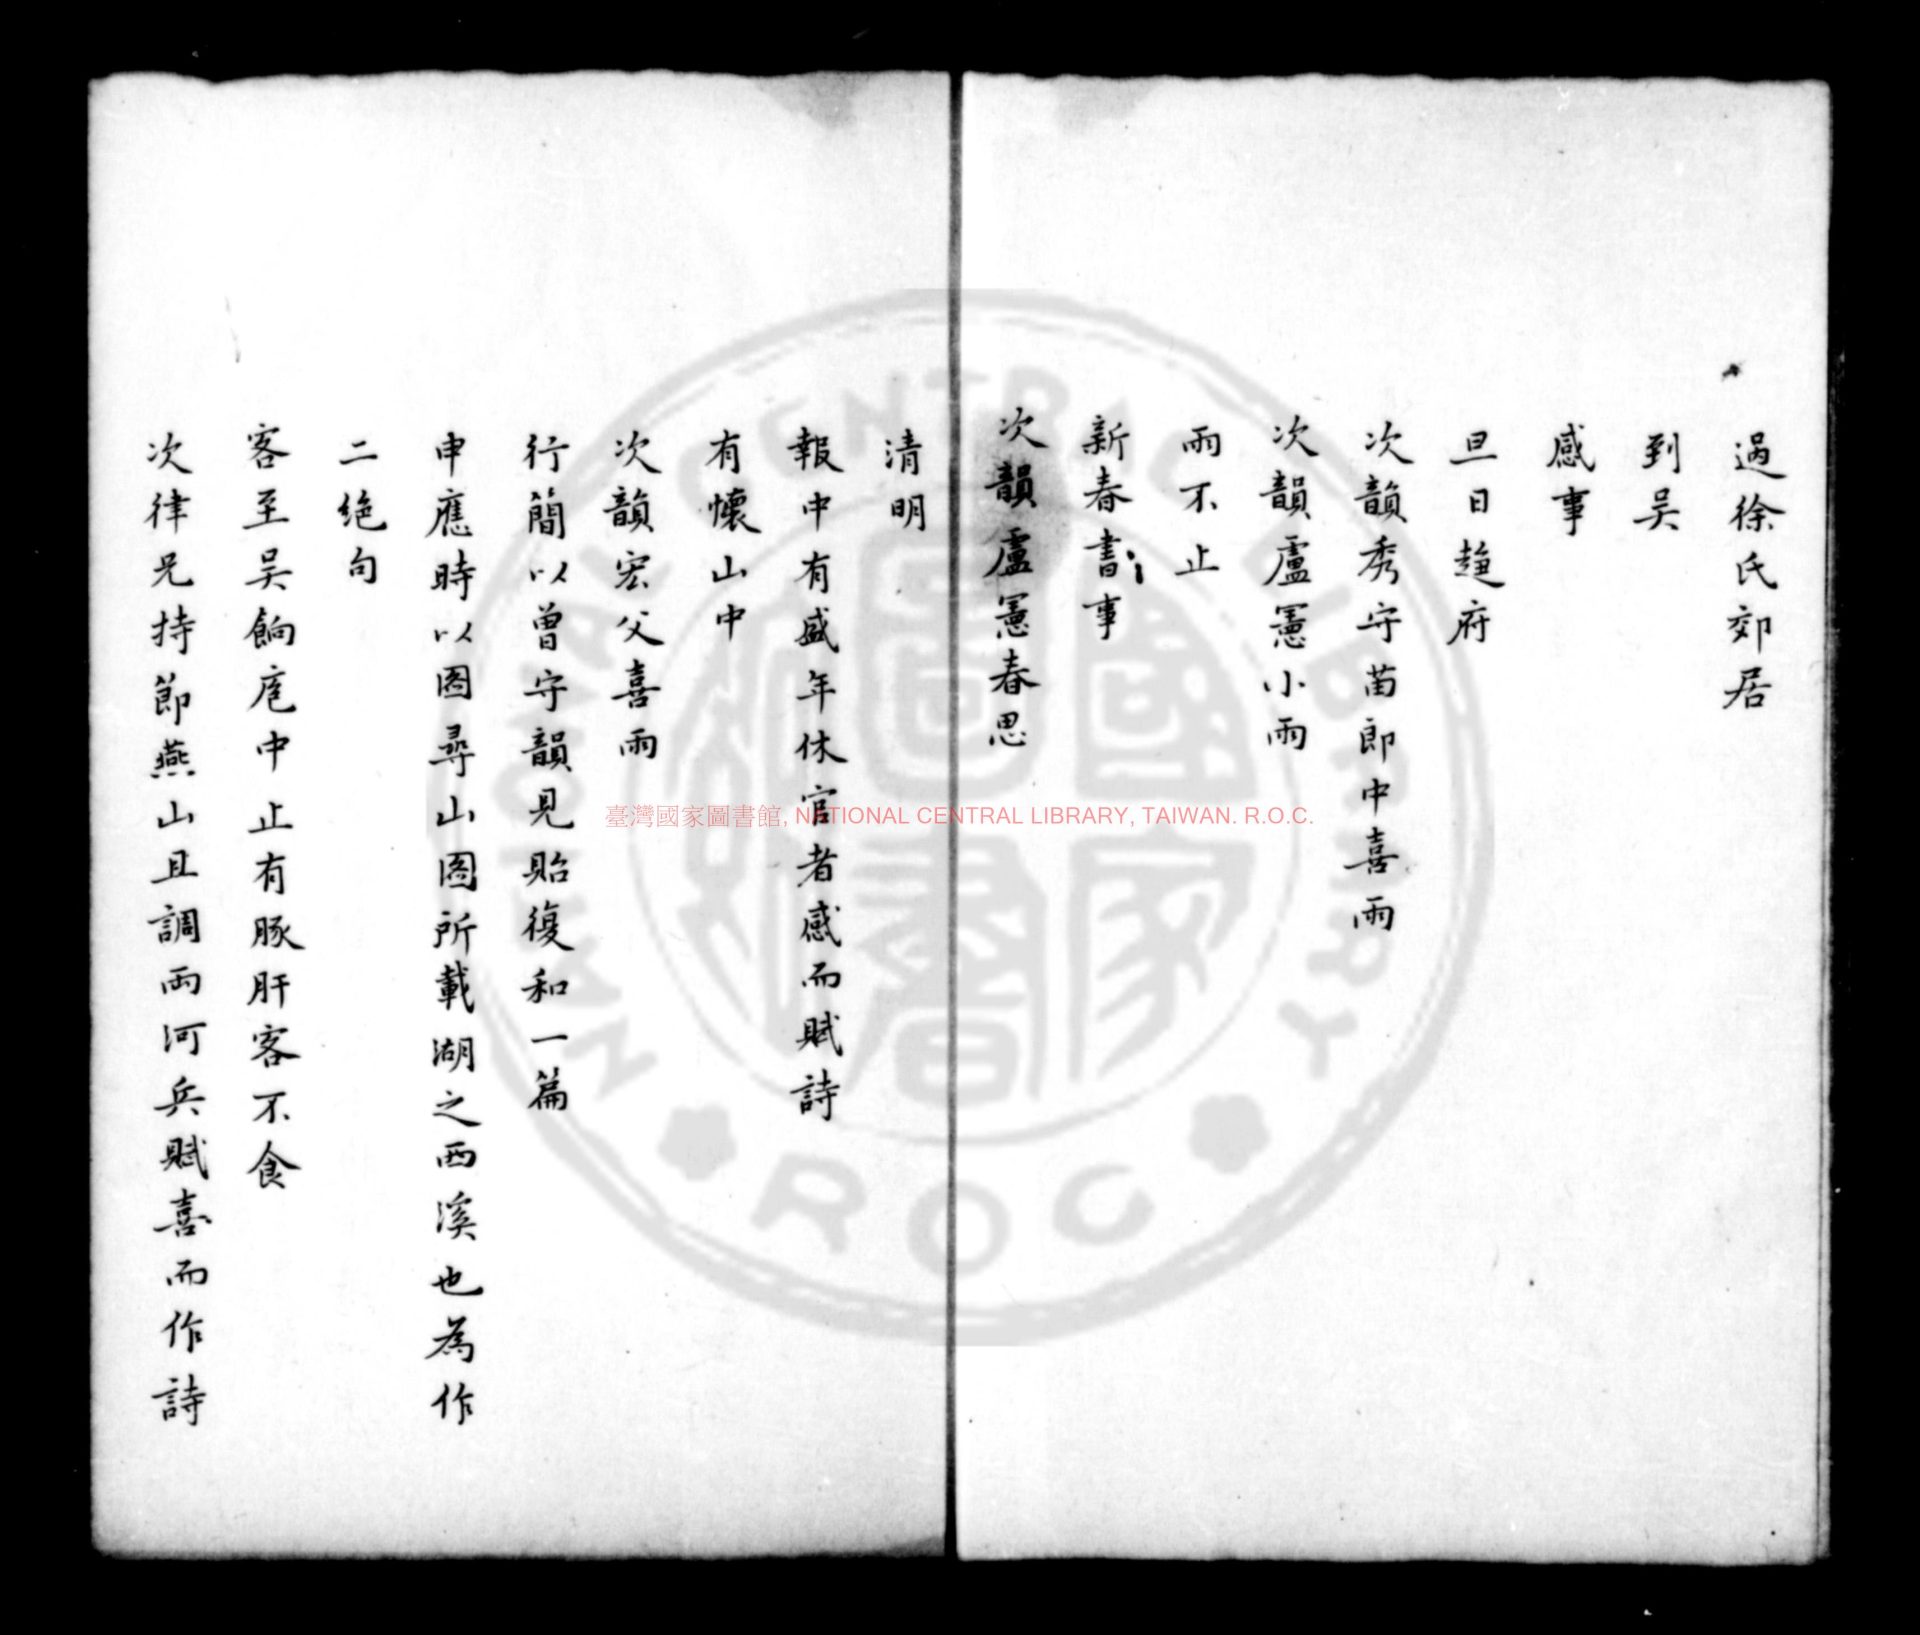 過徐氏郊居
到吴
感事
旦日趨府
次韻秀守苗郎中喜雨
次韻盧憲小雨
雨不止
新春書事
次韻盧憲春思
清明
報中有盛年休官者感而賦詩
有懷山中
次韻宏父喜雨
行簡以曾守韻見貽復和一篇
申應時以图尋山图所載湖之西溪也為作
二絶句
客至吴餉庖中止有豚肝客不食
次律兄持節燕山且調兩河兵賦喜而作詩
臺灣國家圖書館, NATIONAL CENTRAL LIBRARY, TAIWAN. R.O.C.
NATIONAL CENTRAL LIBRARY
ROC
國家圖書館